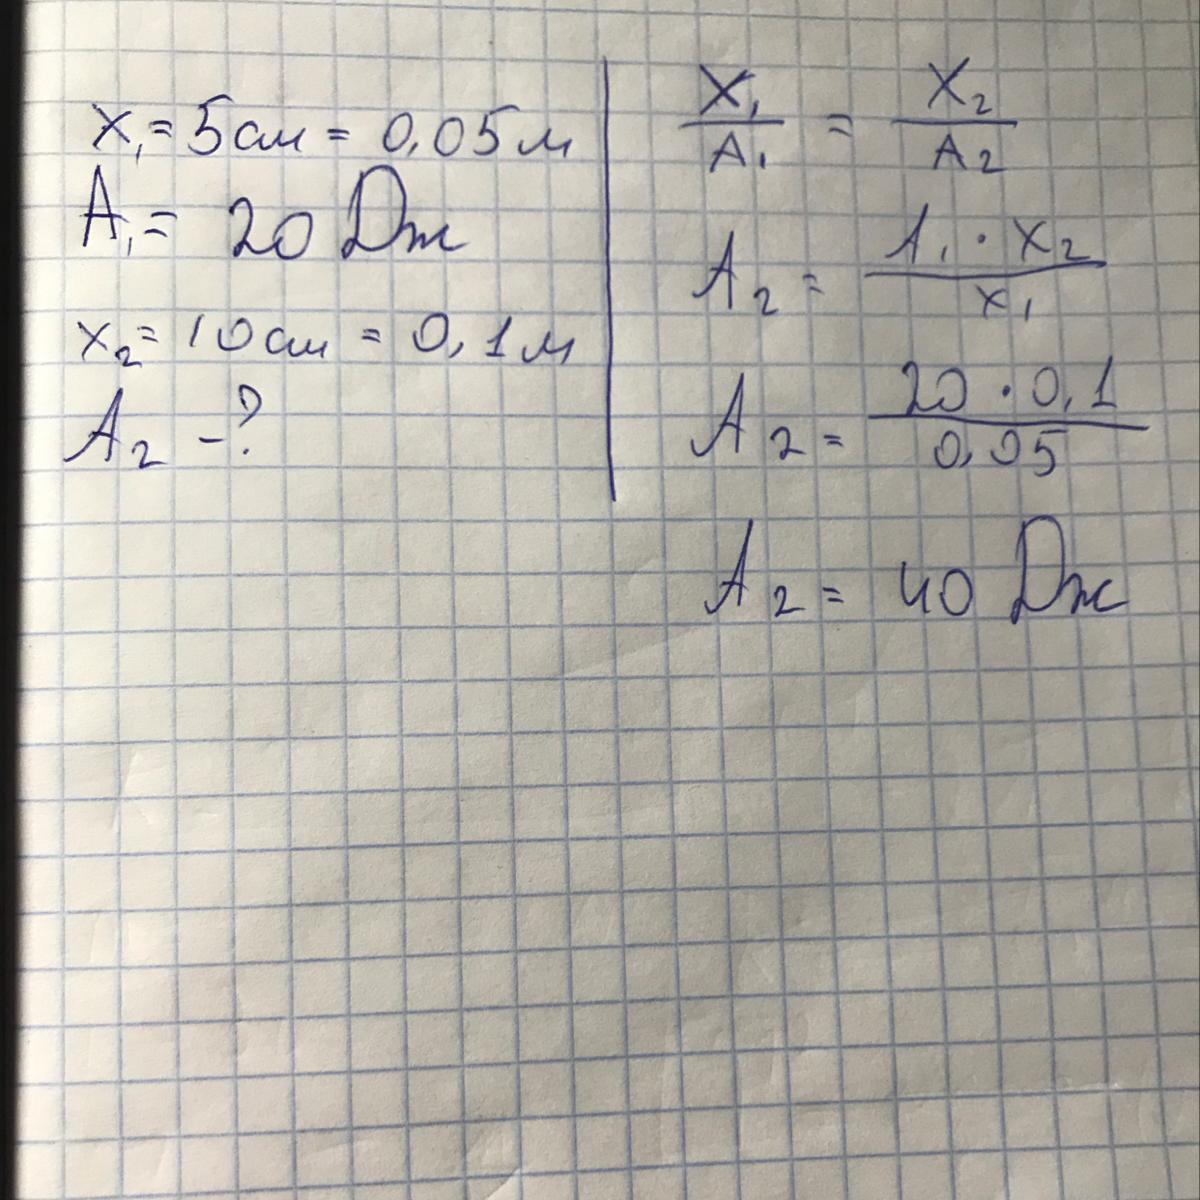 x₁ = 5 см = 0,05 м
A₁ = 20 Дж
x₂ = 10 см = 0,1 м
A₂ - ?
x₁/A₁ = x₂/A₂
A₂ = A₁ · x₂ / x₁
A₂ = 20 · 0,1 / 0,05
A₂ = 40 Дж